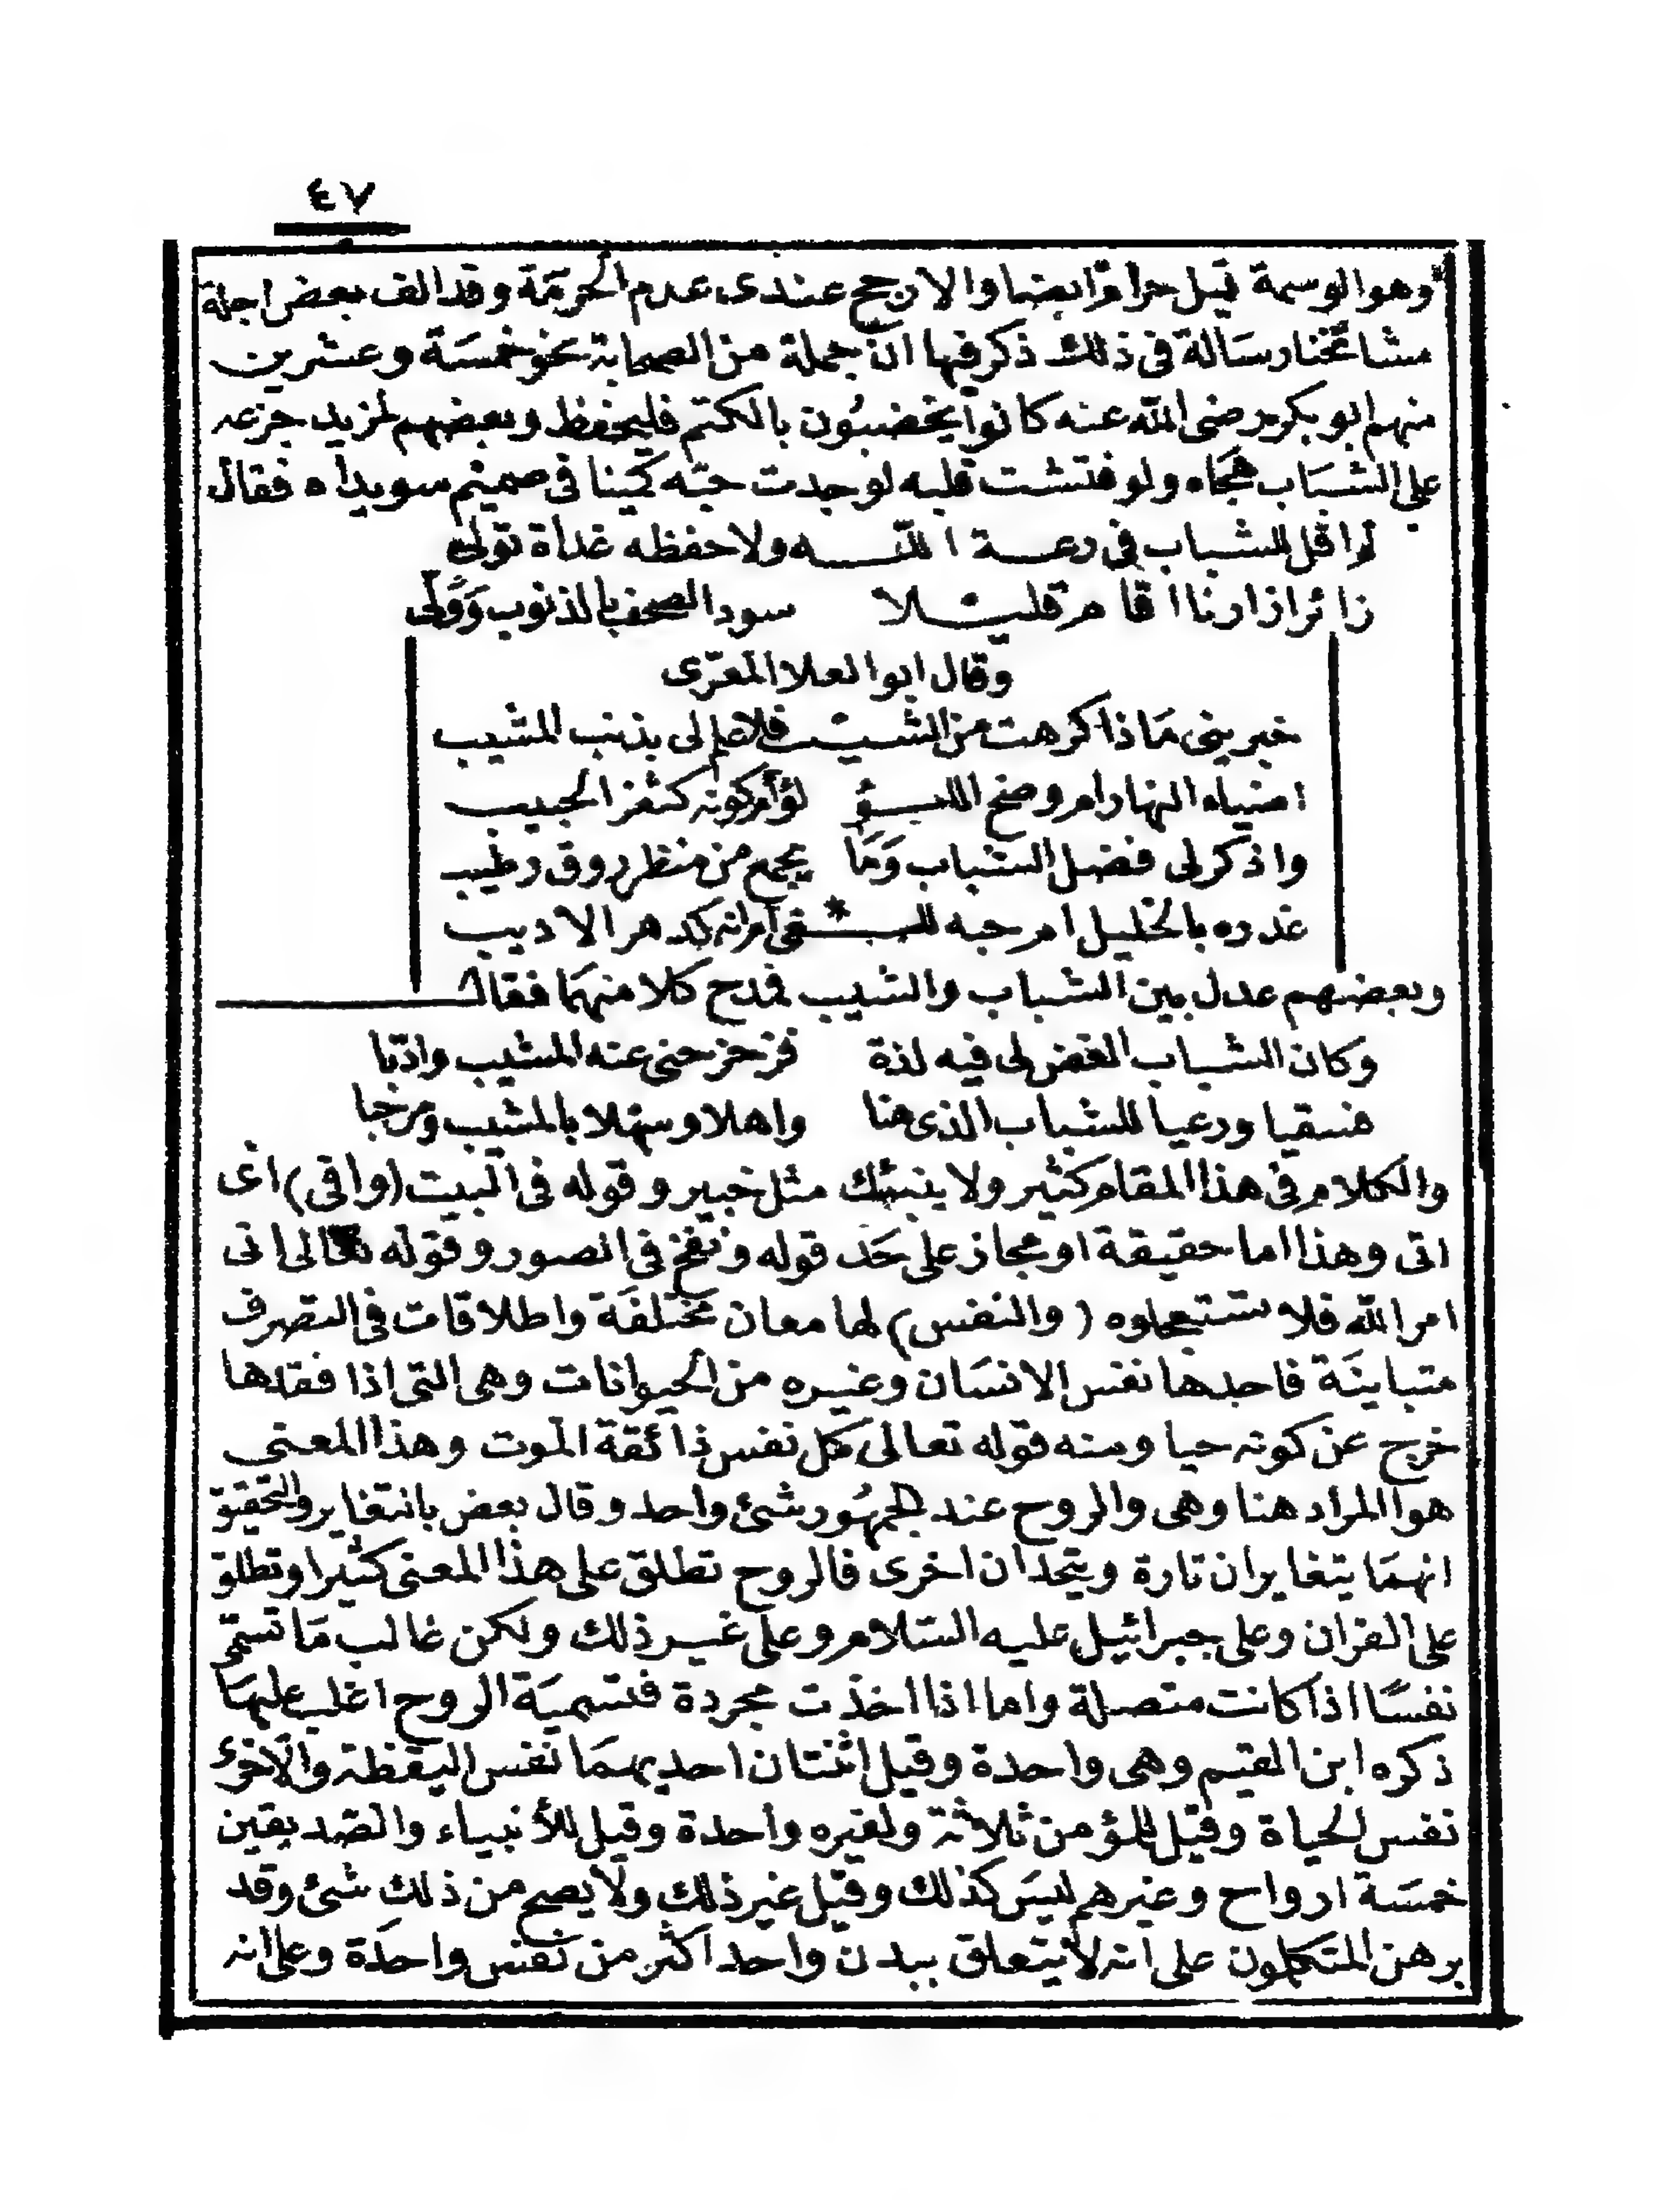 ٤٧
وهو الوسمة قيل حرام ايضا والارجح عندى عدم الحرمة وقد الف بعض اجلة
مشائخنا رسالة فى ذلك ذكر فيها ان جملة من الصحابة نحو خمسة وعشرين
منهم ابو بكر رضى الله عنه كانوا يخضبون بالكتم فليحفظ وبعضهم لمزيد جزعه
على الشباب هجاه ولو فتشت قلبه لوجدت حبه كمينا فى صميم سويداه فقال
لم اقل للشباب فى دعة اللـه ولا حفظه غداة تولى
زائر ازارنا اقام قليـلا سود الصحف بالذنوب وولى
وقال ابو العلا المعرى
خبرينى ماذا كرهت من الشيـب فلا علم لى بذنب المشيب
اضياء النهار ام وضح اللـؤ لؤ أم كونه كثغر الحبيب
واذكر لى فضل الشباب وما يجمع من منظر روق وطيب
غدره بالخليل ام حبه للـغى أم انه كدهر الاديب
وبعضهم عدل بين الشباب والشيب فمدح كلا منهما فقال
وكان الشباب الغض لى فيه لذة فزحزحنى عنه المشيب وادبا
فسقيا ورعيا للشباب الذى مضا واهلا وسهلا بالمشيب ومرحبا
والكلام فى هذا المقام كثير ولا ينبئك مثل خبير وقوله فى البيت (وافى) اى
اتى وهذا اما حقيقة او مجاز على حد قوله ونفخ فى الصور وقوله تعالى اتى
امر الله فلا تستعجلوه (والنفس) لها معان مختلفة واطلاقات فى التصرف
متباينة فاحدها نفس الانسان وغيره من الحيوانات وهى التى اذا فقدها
خرج عن كونه حيا ومنه قوله تعالى كل نفس ذائقة الموت وهذا المعنى
هو المراد هنا وهى والروح عند الجمهور شئ واحد وقال بعض بالتغاير والتحقيق
انهما يتغايران تارة ويتحدان اخرى فالروح تطلق على هذا المعنى كثيرا وتطلق
على القران وعلى جبرائيل عليه السلام وعلى غير ذلك ولكن غالب ما تسمى
نفسا اذا كانت متصلة واما اذا اخذت مجردة فتسمية الروح اغلب عليها
ذكره ابن القيم وهى واحدة وقيل اثنتان احديهما نفس اليقظة والاخرى
نفس الحياة وقيل للمؤمن ثلاثة ولغيره واحدة وقيل للأنبياء والصديقين
خمسة ارواح وغيرهم ليس كذلك وقيل غير ذلك ولا يصح من ذلك شئ وقد
برهن المتكلمون على انه لا يتعلق ببدن واحد اكثر من نفس واحدة وعلى انه